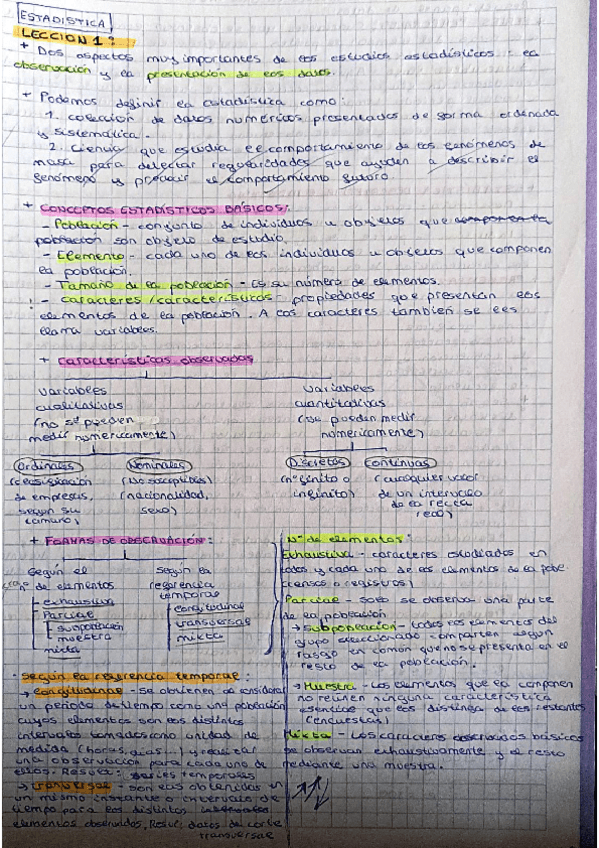 ESTADISTICA
LECCION 1:
+ Dos aspectos muy importantes de los estudios estadísticos: la
observación y la presentación de los datos.
+ Podemos definir la estadística como:
1. colección de datos numericos presentados de forma ordenada
y sistemática.
2. Ciencia que estudia el comportamiento de los fenómenos de
masa para detectar regularidades que ayuden a describir el
fenómeno y predecir el comportamiento futuro
+ CONCEPTOS ESTADÍSTICOS BÁSICOS:
- Población - conjunto de individuos u objetos que
población son objeto de estudio.
- Elemento - cada uno de los individuos u objetos que componen
la población.
- Tamaño de la población - Es su número de elementos.
! - Caracteres / características - propiedades que presentan los
elementos de la población. A los caracteres también se les
llama variables.
+ Características observadas
variables
cualitativas
(no se pueden
medir numericamente)
variables
cuantitativas
(se pueden medir
numericamente)
Ordinales
(clasificación
de empresas,
según su
tamaño)
Nominales
(No susceptibles)
(nacionalidad,
sexo)
Discretas
(nº finito o
infinito)
Continuas
(cualquier valor
de un intervalo
de la recta
real)
+ FORMAS DE OBSERVACIÓN:
Según el
nº de elementos
exhaustiva
Parcial
subpoblación
muestra
mixta
Según la
referencia
temporal
longitudinal
transversal
mixta
Nº de elementos:
Exhaustiva - caracteres estudiados en
todos y cada uno de los elementos de la pobl.
(censos o registros)
Parcial - solo se observa una parte
de la población
→ Subpoblación - todos los elementos del
grupo seleccionado comparten algún
rasgo en común que no se presenta en el
resto de la población.
→ Muestra - Los elementos que la componen
no reúnen ninguna característica
esencial que los distinga de los restantes
(encuestas)
Mixta - Los caracteres básicos
se observan exhaustivamente y el resto
mediante una muestra.
- Según la referencia temporal:
→ Longitudinal - Se obtienen al considerar
un periodo de tiempo como una población
cuyos elementos son los distintos
intervalos tomados como unidad de
medida (horas, días...) y realizar
una observación para cada uno de
ellos. Result: series temporales
→ transversal - son las obtenidas en
un mismo instante o intervalo de
tiempo para los distintos
elementos observados. Result: datos de corte
transversal